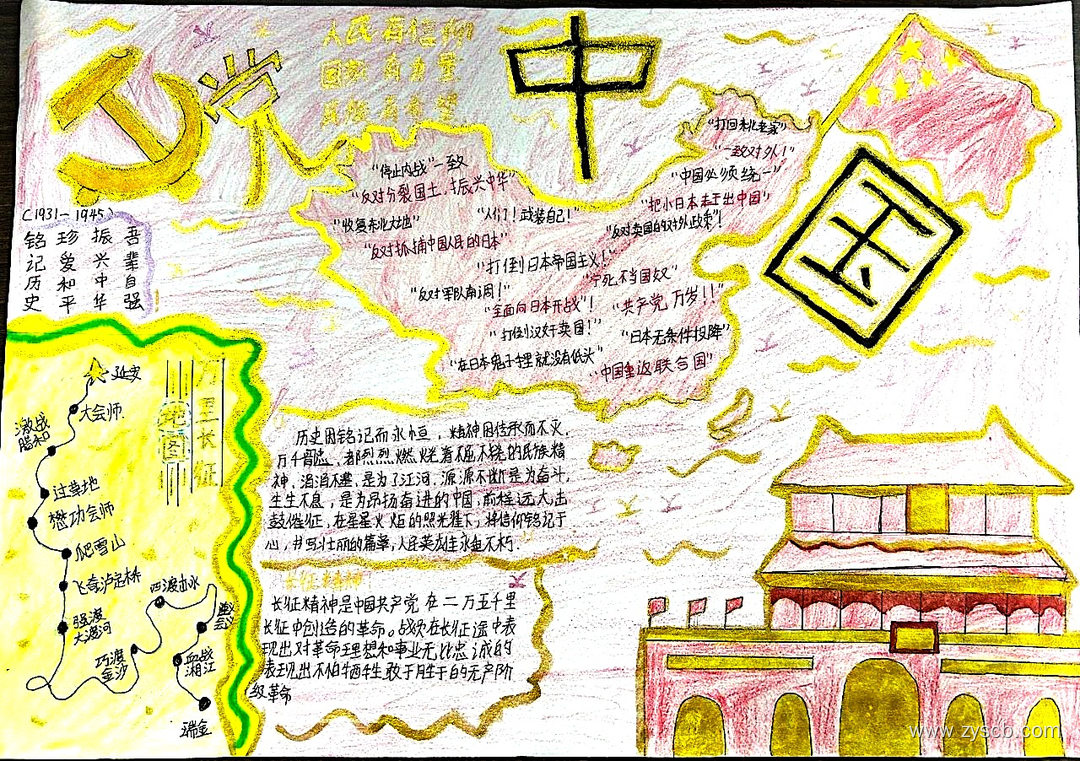 党
人民有信仰
国家有力量
民族有希望
中
国
(1931-1945)
铭 珍 振 吾
记 爱 兴 辈
历 和 中 自
史 平 华 强
"停止内战"一致
"反对分裂国土,振兴中华"
"收复东北大地"
"人们!武装自己!"
"反对抓捕中国人民的日本"
"打倒日本帝国主义!"
"反对军队南调!"
"宁死不当国奴"
"全面向日本开战"!
"共产党万岁!!"
"打倒汉奸卖国!"
"日本无条件投降"
"在日本鬼子里就没有低头"
"中国重返联合国"
"打回东北老家"
"一致对外!"
"中国必须统一"
"把小日本赶出中国"
"反对卖国的对外政策"!
万里长征
地图
延安
大会师
激战
腊子口
过草地
懋功会师
爬雪山
飞夺泸定桥
强渡
大渡河
巧渡
金沙
四渡赤水
遵义
血战
湘江
瑞金
历史因铭记而永恒,精神因传承而不灭,
万千普通,都烈烈燃烧着不屈不挠的民族精
神,涓涓不壅,是为了江河,源源不断是为奋斗,
生生不息,是为昂扬奋进的中国,前程远大,击
鼓催征,在星星火炬的照光耀下,将信仰铭记于
心,书写壮丽的篇章,人民英雄永垂不朽.
长征精神
长征精神是中国共产党在二万五千里
长征中创造的革命。战次在长征途中表
现出对革命理想和事业无比忠诚的
表现出不怕牺牲敢于胜于的无产阶
级革命
www.zyscb.com